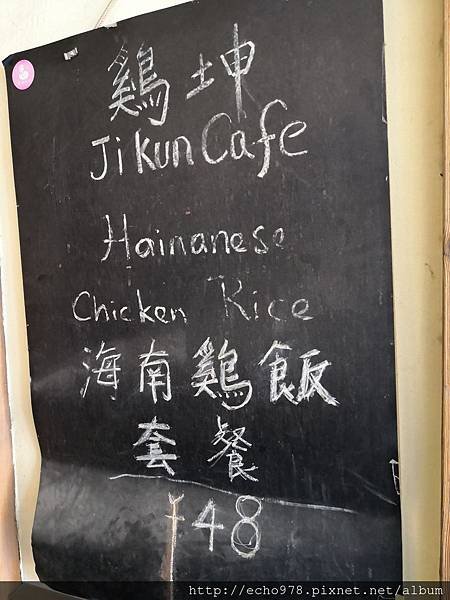 鷄坤
Jikun Cafe
Hainanese
Chicken Rice
海南鷄飯
套餐
¥48
http://echo978.pixnet.net/album